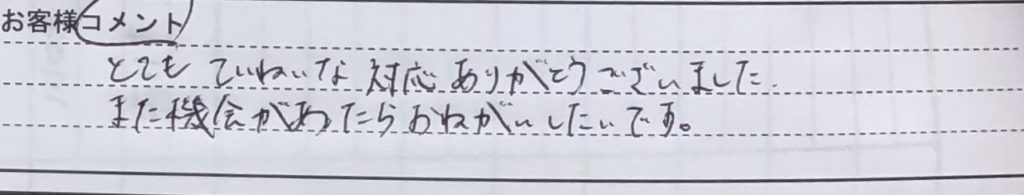 お客様コメント
とてもていねいな対応ありがとうございました.
また機会があったらおねがいしたいです。